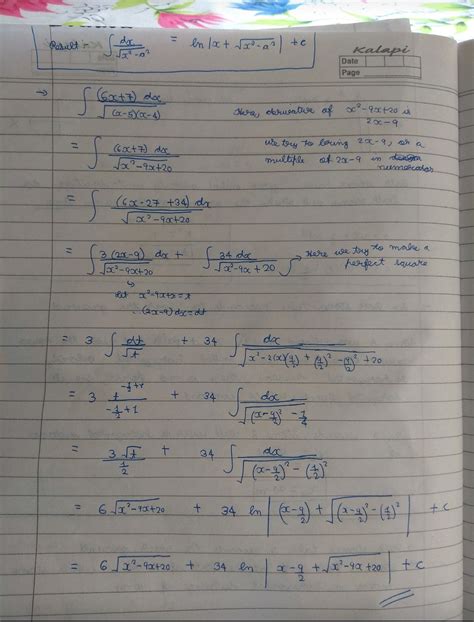 Kalapi
Date
Page
Result - ∫ dx/√(x²-a²) = ln|x + √(x²-a²)| + c
→ ∫ (6x+7) dx / √((x-5)(x-4))
Here, derivative of x²-9x+20 is
2x-9.
= ∫ (6x+7) dx / √(x²-9x+20)
we try to bring 2x-9, or a
multiple of 2x-9 in
numerator
= ∫ (6x-27+34) dx / √(x²-9x+20)
= ∫ 3(2x-9) dx / √(x²-9x+20) + ∫ 34 dx / √(x²-9x+20)
Here we try to make a
perfect square
let x²-9x+20=t
∴ (2x-9)dx=dt
= 3 ∫ dt/√t + 34 ∫ dx / √(x²-2(x)(9/2)+(9/2)²-(9/2)²+20)
= 3 t^(-1/2+1) / (-1/2+1) + 34 ∫ dx / √((x-9/2)²-1/4)
= 3√t / (1/2) + 34 ∫ dx / √((x-9/2)²-(1/2)²)
= 6√(x²-9x+20) + 34 ln |(x-9/2) + √((x-9/2)²-(1/2)²)| + c
= 6√(x²-9x+20) + 34 ln |x-9/2 + √(x²-9x+20)| + c